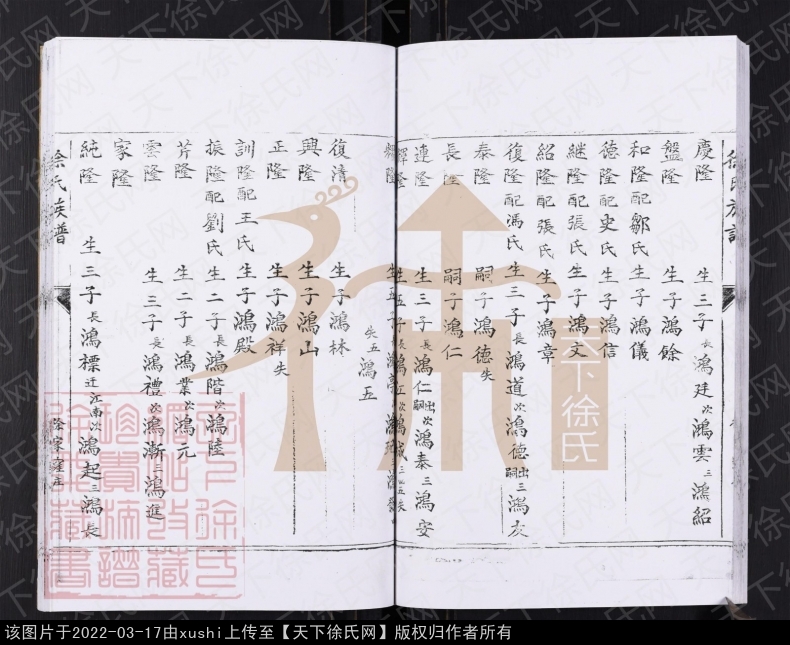 慶隆 生三子長鴻廷次鴻雲三鴻紹
盤隆 生子鴻餘
和隆配鄒氏生子鴻儀
德隆配史氏生子鴻信
繼隆配張氏生子鴻文
紹隆配張氏生子鴻章
復隆配馮氏生三子長鴻道次鴻德出嗣三鴻友
泰隆 嗣子鴻德失
長隆 嗣子鴻仁
連隆 生三子長鴻仁出嗣次鴻泰三鴻安
失五鴻五
復清 生子鴻林
興隆 生子鴻山
正隆 生子鴻祥失
訓隆配王氏生子鴻殿
振隆配劉氏生二子長鴻階次鴻陸
芹隆 生二子長鴻業次鴻元
雲隆 生三子長鴻禮次鴻漸三鴻進
家隆
純隆 生三子長鴻標迁江南次鴻起三鴻長
徐氏族普
天下徐氏
天下徐氏网
该图片于2022-03-17由xushi上传至【天下徐氏网】版权归作者所有